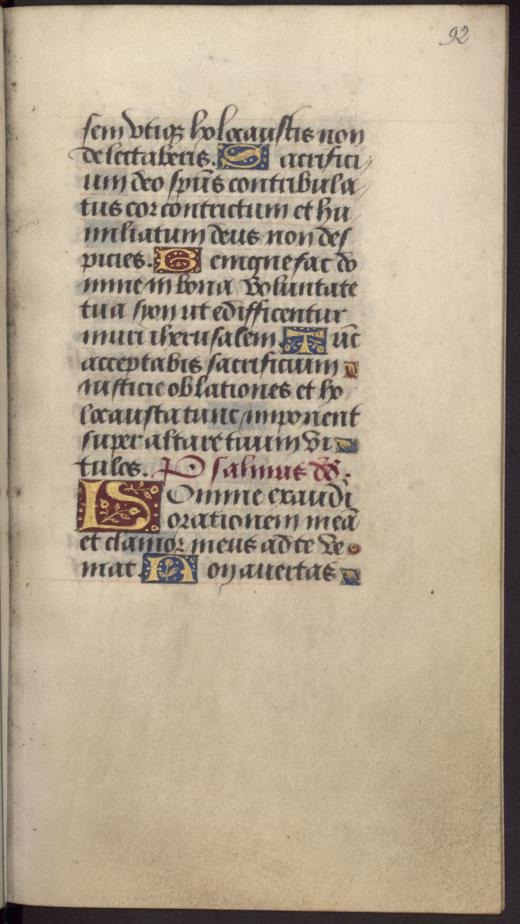 92
sem vtiqꝫ holocaustis non
delectaberis. Sacrifici
um deo spūs contribula
tus cor contritum et hu
miliatum deus non des
picies. Benigne fac do
mine in bona voluntate
tua syon ut edifficentur
muri iherusalem. Tūc
acceptabis sacrificium
iusticie oblationes et ho
locausta tunc imponent
super altare tuum vi
tulos. Psalmus dd.
Domine exaudi
orationem meā
et clamor meus ad te ve
niat. Non auertas